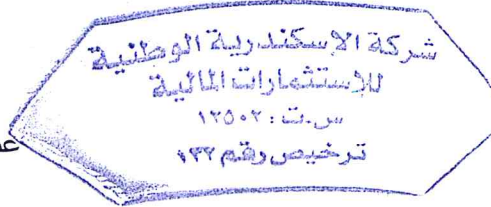 شركة الاسكندرية الوطنية
للإستثمارات المالية
س.ت: ١٢٥٠٢
ترخيص رقم ١٣٣